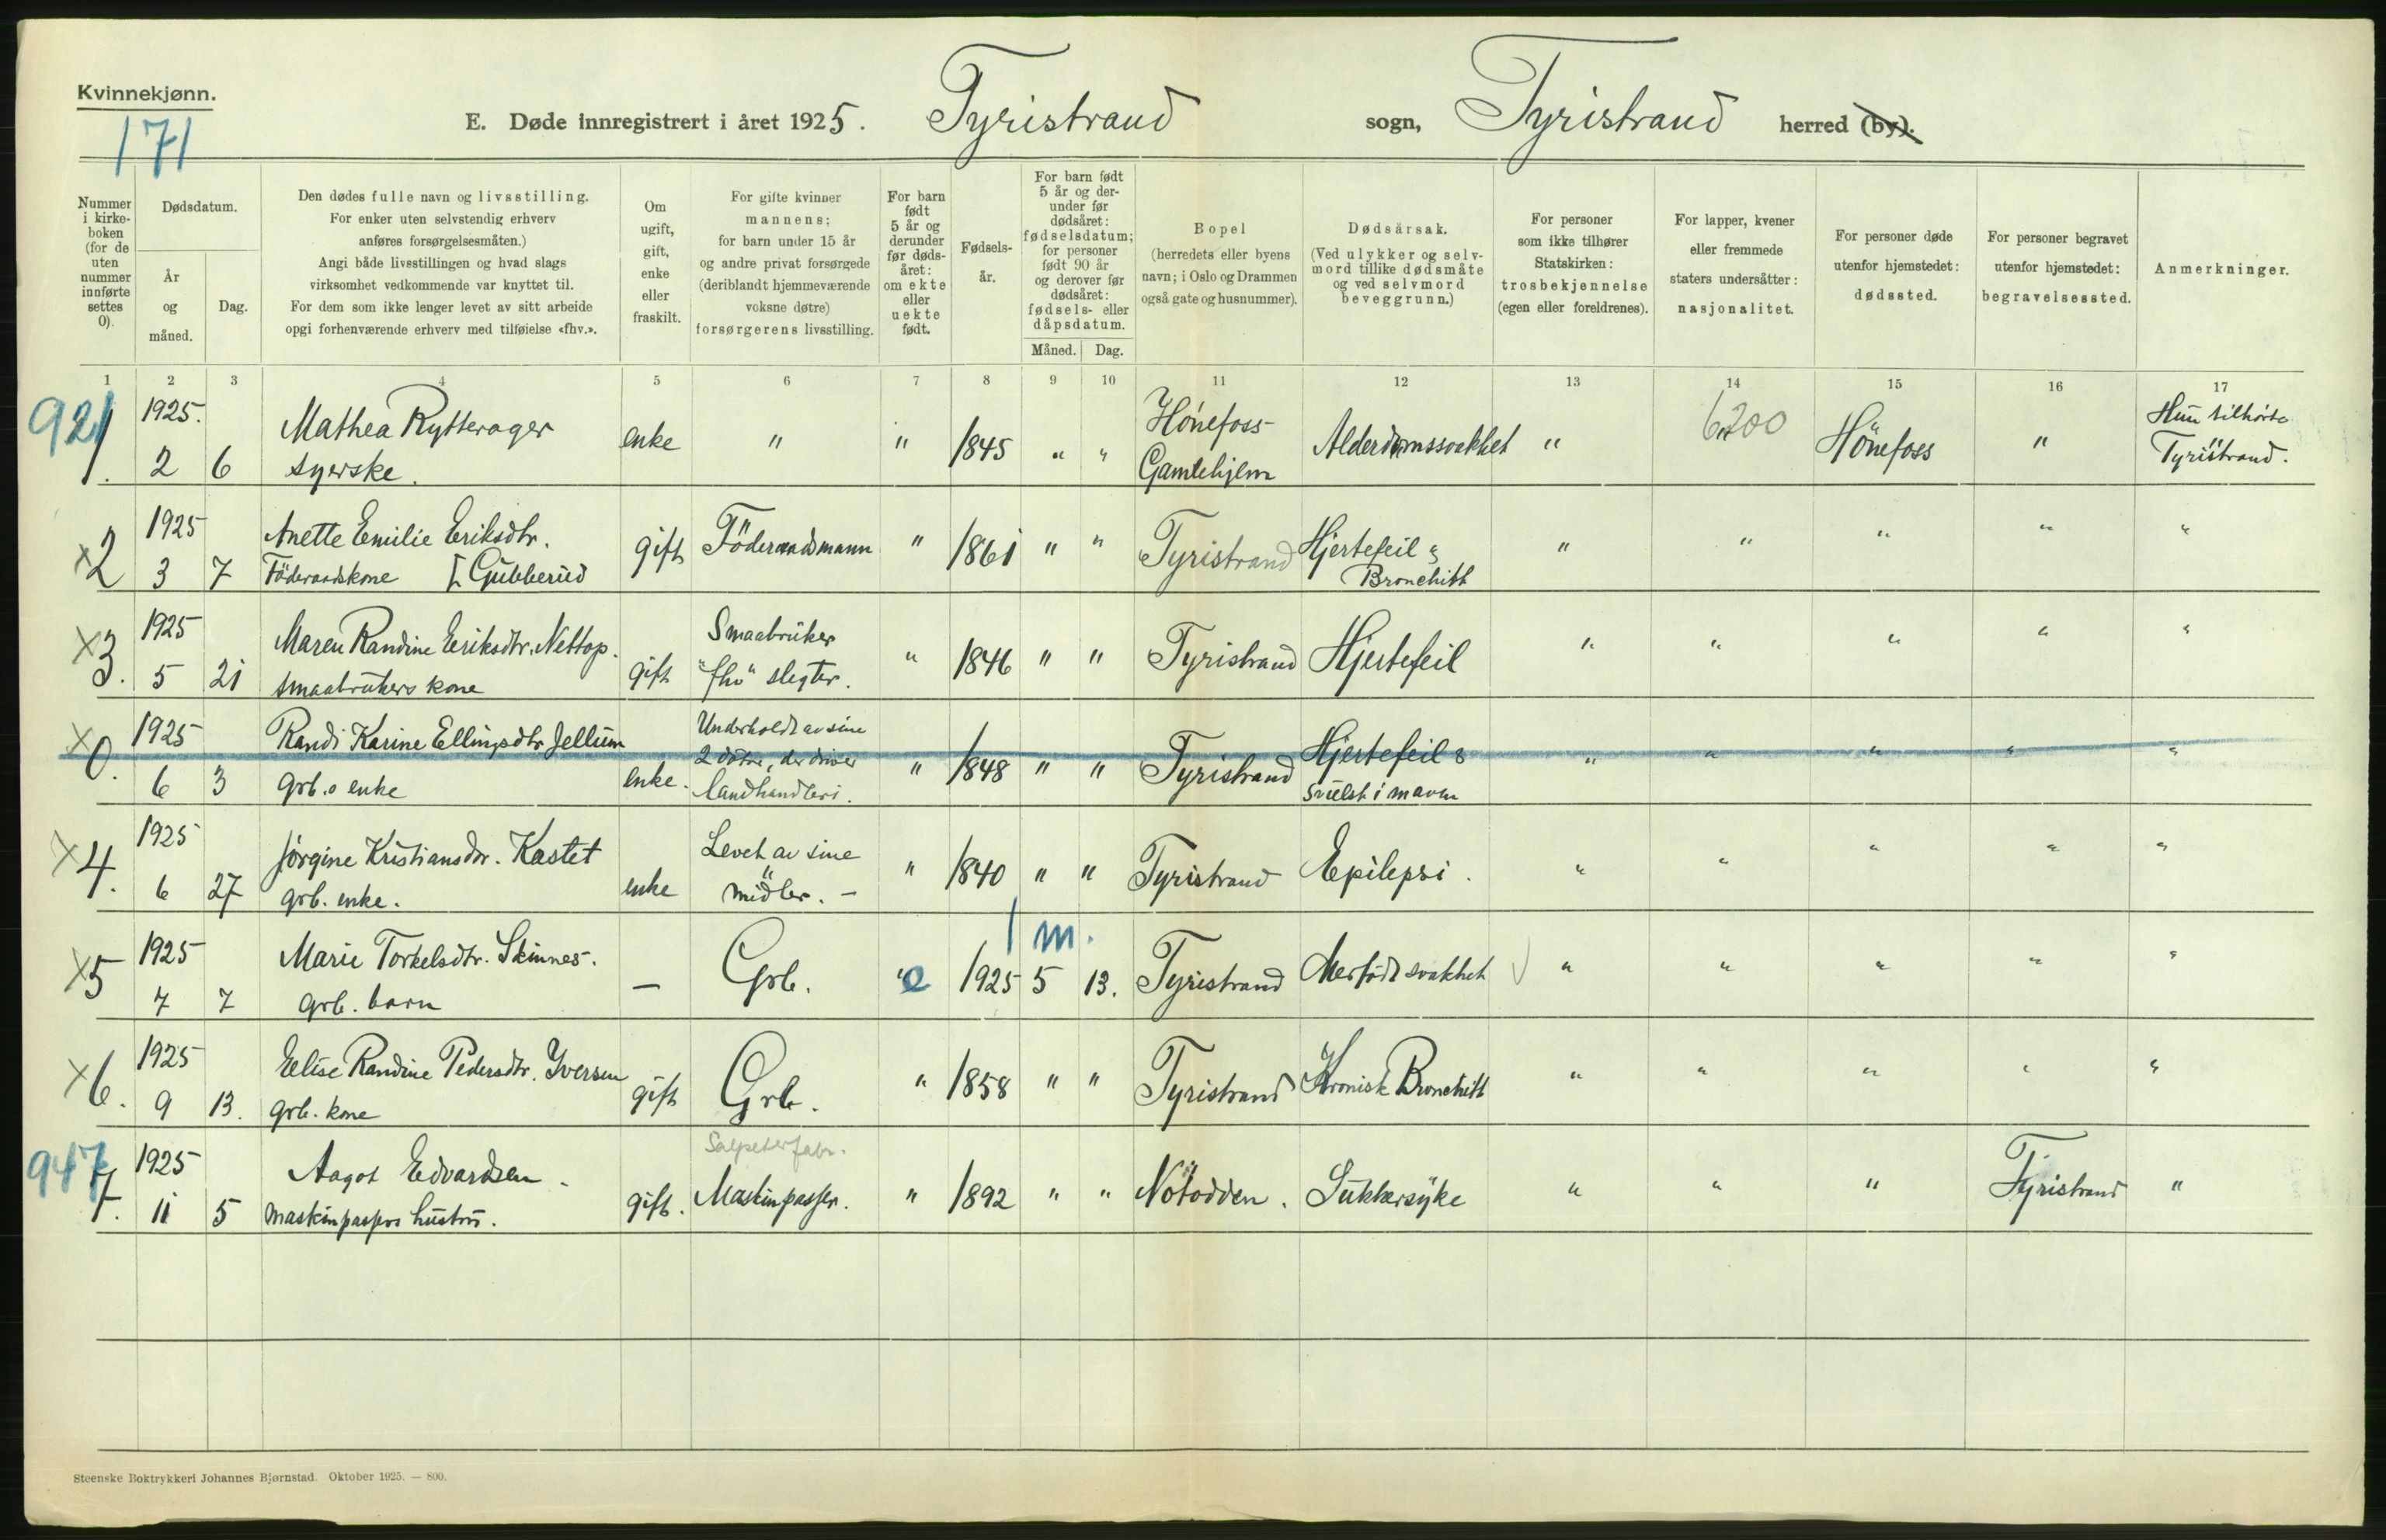 Kvinnekjønn.
171
E. Døde innregistrert i året 1925. Tyristrand sogn, Tyristrand herred (by).
Nummer i kirke- boken (for de uten nummer innførte settes 0).
Dødsdatum.
År og måned.
Dag.
Den dødes fulle navn og livsstilling.
For enker uten selvstendig erhverv
anføres forsørgelsesmåten.)
Angi både livsstillingen og hvad slags
virksomhet vedkommende var knyttet til.
For dem som ikke lenger levet av sitt arbeide
opgi forhenværende erhverv med tilføielse «fhv.».
Om ugift, gift, enke eller fraskilt.
For gifte kvinner
mannens;
for barn under 15 år
og andre privat forsørgede
(deriblandt hjemmeværende
voksne døtre)
forsørgerens livsstilling.
For barn født 5 år og derunder før døds- året: om ekte eller uekte født.
Fødsels- år.
For barn født 5 år og der- under før dødsåret: fødselsdatum; for personer født 90 år og derover før dødsåret: fødsels- eller dåpsdatum.
Måned. Dag.
Bopel
(herredets eller byens
navn; i Oslo og Drammen
også gate og husnummer).
Dødsårsak.
(Ved ulykker og selv-
mord tillike dødsmåte
og ved selvmord
beveggrunn.)
For personer
som ikke tilhører
Statskirken:
trosbekjennelse
(egen eller foreldrenes).
For lapper, kvener
eller fremmede
staters undersåtter:
nasjonalitet.
For personer døde
utenfor hjemstedet:
dødssted.
For personer begravet
utenfor hjemstedet:
begravelsessted.
Anmerkninger.
1 2 3 4 5 6 7 8 9 10 11 12 13 14 15 16 17
921
1. 1925. 2 6 Mathea Rytterager
syerske.
enke " " 1845 " " Hønefoss
Gamlehjem
Alderdomssvakhet " 6200 Hönefoss " Hun tilhørte
Tyristrand.
x2 1925 3 7 Anette Emilie Eriksdtr.
Föderaadskone [Gubberud
gift Föderaadsmann " 1861 " " Tyristrand Hjertefeil &
Bronchitt
" " " " "
x3. 1925 5 21 Maren Randine Eriksdtr. Nettop.
smaabrukers kone
gift Smaabruker
"fhv" slegter.
" 1846 " " Tyristrand Hjertefeil " " " " "
x0. 1925 6 3 Randi Karine Ellingsdtr Jellum
grb.s enke
enke. Underholdt av sine
2 døtre, der driver
landhandleri.
" 1848 " " Tyristrand Hjertefeil &
Svulst i maven
" " " " "
x4. 1925 6 27 Jörgine Kristiansdtr. Kastet
grb. enke.
enke Levet av sine
midler. —
" 1840 " " Tyristrand Epilepsi. " " " " "
x5 1925 7 7 Marie Torkelsdtr. Skinnes.
grb. barn
— Grb. e 1925 1 m. 5 13. Tyristrand Medfödt svakhet " " " " "
x6. 1925 9 13. Elise Randine Pedersdtr. Iversen
grb. kone
gift Grb. " 1858 " " Tyristrand Kronisk Bronchitt " " " " "
947
7. 1925 11 5 Aagot Edvardsen.
maskinpassers hustru.
gift. Salpeterfabr.
Maskinpasser.
" 1892 " " Notodden. Sukkersyke " " " Tyristrand "
Steenske Boktrykkeri Johannes Bjørnstad. Oktober 1925. — 800.